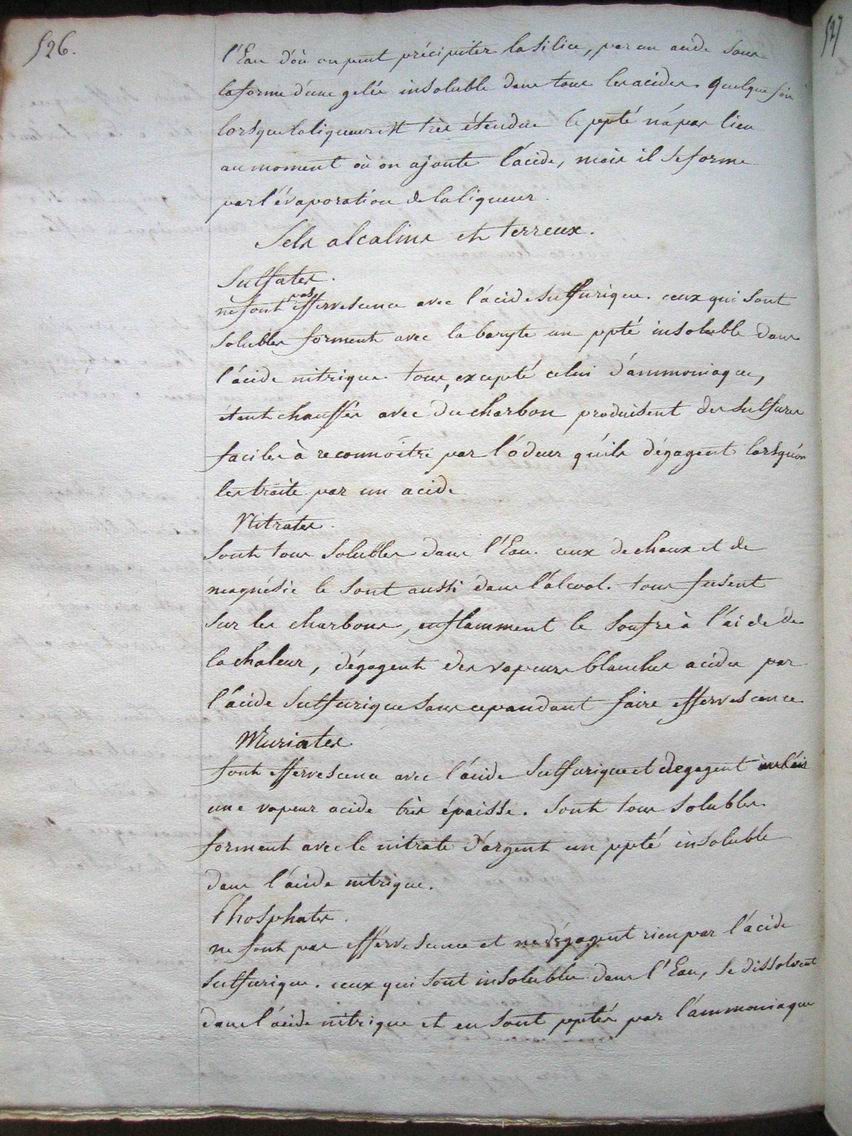 526.
527
l'Eau d'où on peut précipiter la silice, par un acide sous
la forme d'une gelée insoluble dans tous les acides. Quelque fois
lorsque la liqueur est très étendue le ppté n'a pas lieu
au moment où on ajoute l'acide, mais il se forme
par l'évaporation de la liqueur.
Sels alcalins et terreux.
Sulfates.
ne font pas effervescence avec l'acide sulfurique. ceux qui sont
solubles forment avec la baryte un ppté insoluble dans
l'acide nitrique. tous, excepté celui d'ammoniaque,
étant chauffés avec du charbon produisent des sulfures
faciles à reconnoître par l'ôdeur qu'ils dégagent lorsqu'on
les traite par un acide
Nitrates.
Sont tous solubles dans l'Eau. ceux de chaux et de
magnésie le sont aussi dans l'alcool. tous fusent
sur les charbons, enflamment le soufre à l'aide de
la chaleur, dégagent des vapeurs blanches acides par
l'acide sulfurique sans cependant faire effervescence
Muriates
font effervescence avec l'acide sulfurique et dégagent
une vapeur acide très épaisse. Sont tous solubles
forment avec le nitrate d'argent un ppté insoluble
dans l'acide nitrique.
Phosphates.
ne font pas effervescence et ne dégagent rien par l'acide
sulfurique. ceux qui sont insolubles dans l'Eau, se dissolvent
dans l'acide nitrique et en sont pptés par l'ammoniaque